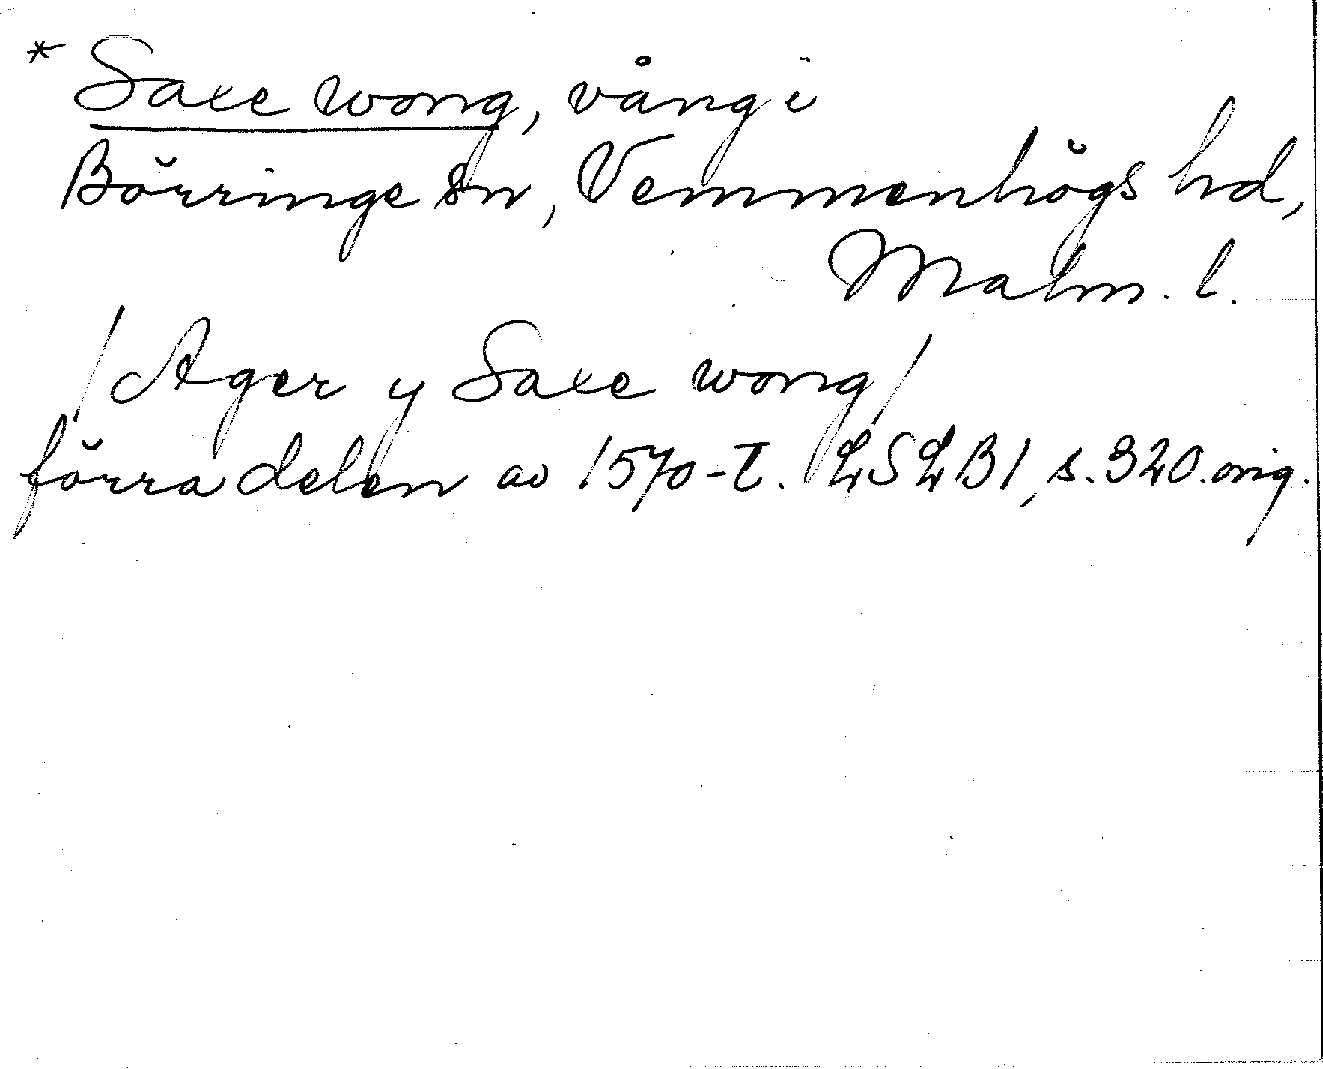 * Saxe wong, vång i
Börringe sn, Vemmenhögs hd,
Malm. l.
/Ager y Saxe wong/
förra delen av 1570-t. LSLB1, s. 320. orig.